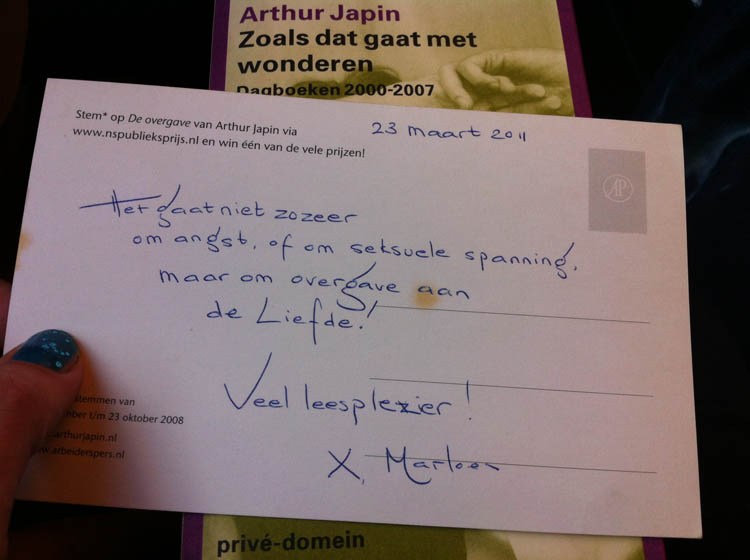 Arthur Japin
Zoals dat gaat met
wonderen
Dagboeken 2000-2007
Stem* op De overgave van Arthur Japin via
www.nspublieksprijs.nl en win één van de vele prijzen!
23 maart 2011
AP
Het gaat niet zozeer
om angst, of om seksuele spanning,
maar om overgave aan
de Liefde!
Veel leesplezier!
X, Marloes
stemmen van
t/m 23 oktober 2008
arthurjapin.nl
arbeiderspers.nl
privé-domein